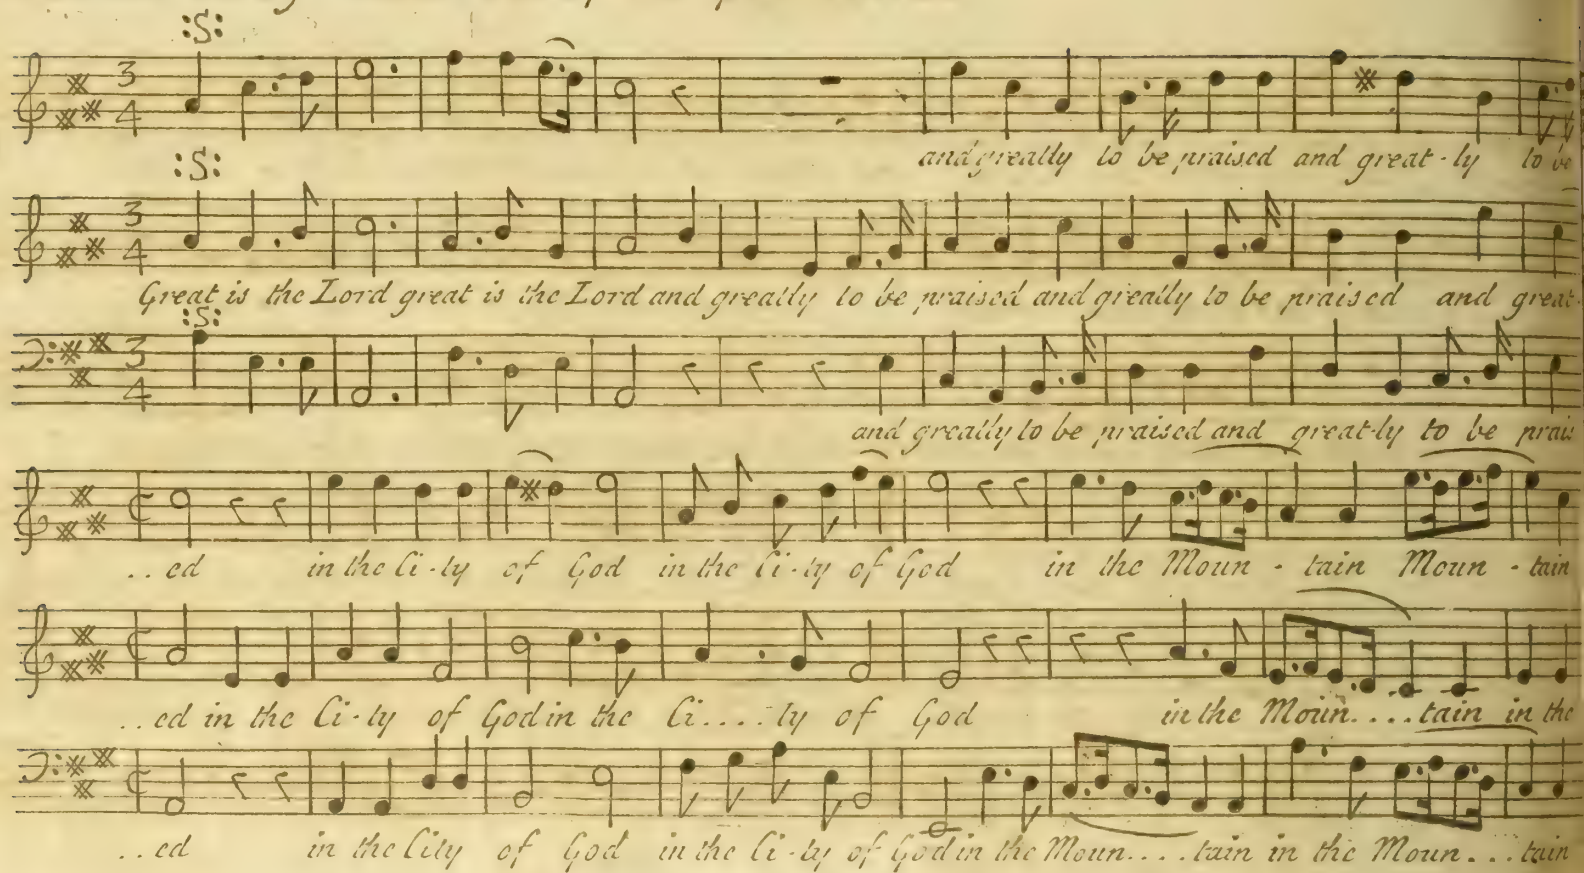 :S:
3 4
and greatly to be praised and great-ly to be
:S:
3 4
Great is the Lord great is the Lord and greatly to be praised and greatly to be praised and great-
:S:
3 4
and greatly to be praised and great-ly to be prais
..ed in the Ci-ty of God in the Ci-ty of God in the Moun - tain Moun - tain
..ed in the Ci-ty of God in the Ci....ty of God in the Moun....tain in the
..ed in the City of God in the Ci-ty of God in the Moun....tain in the Moun...tain